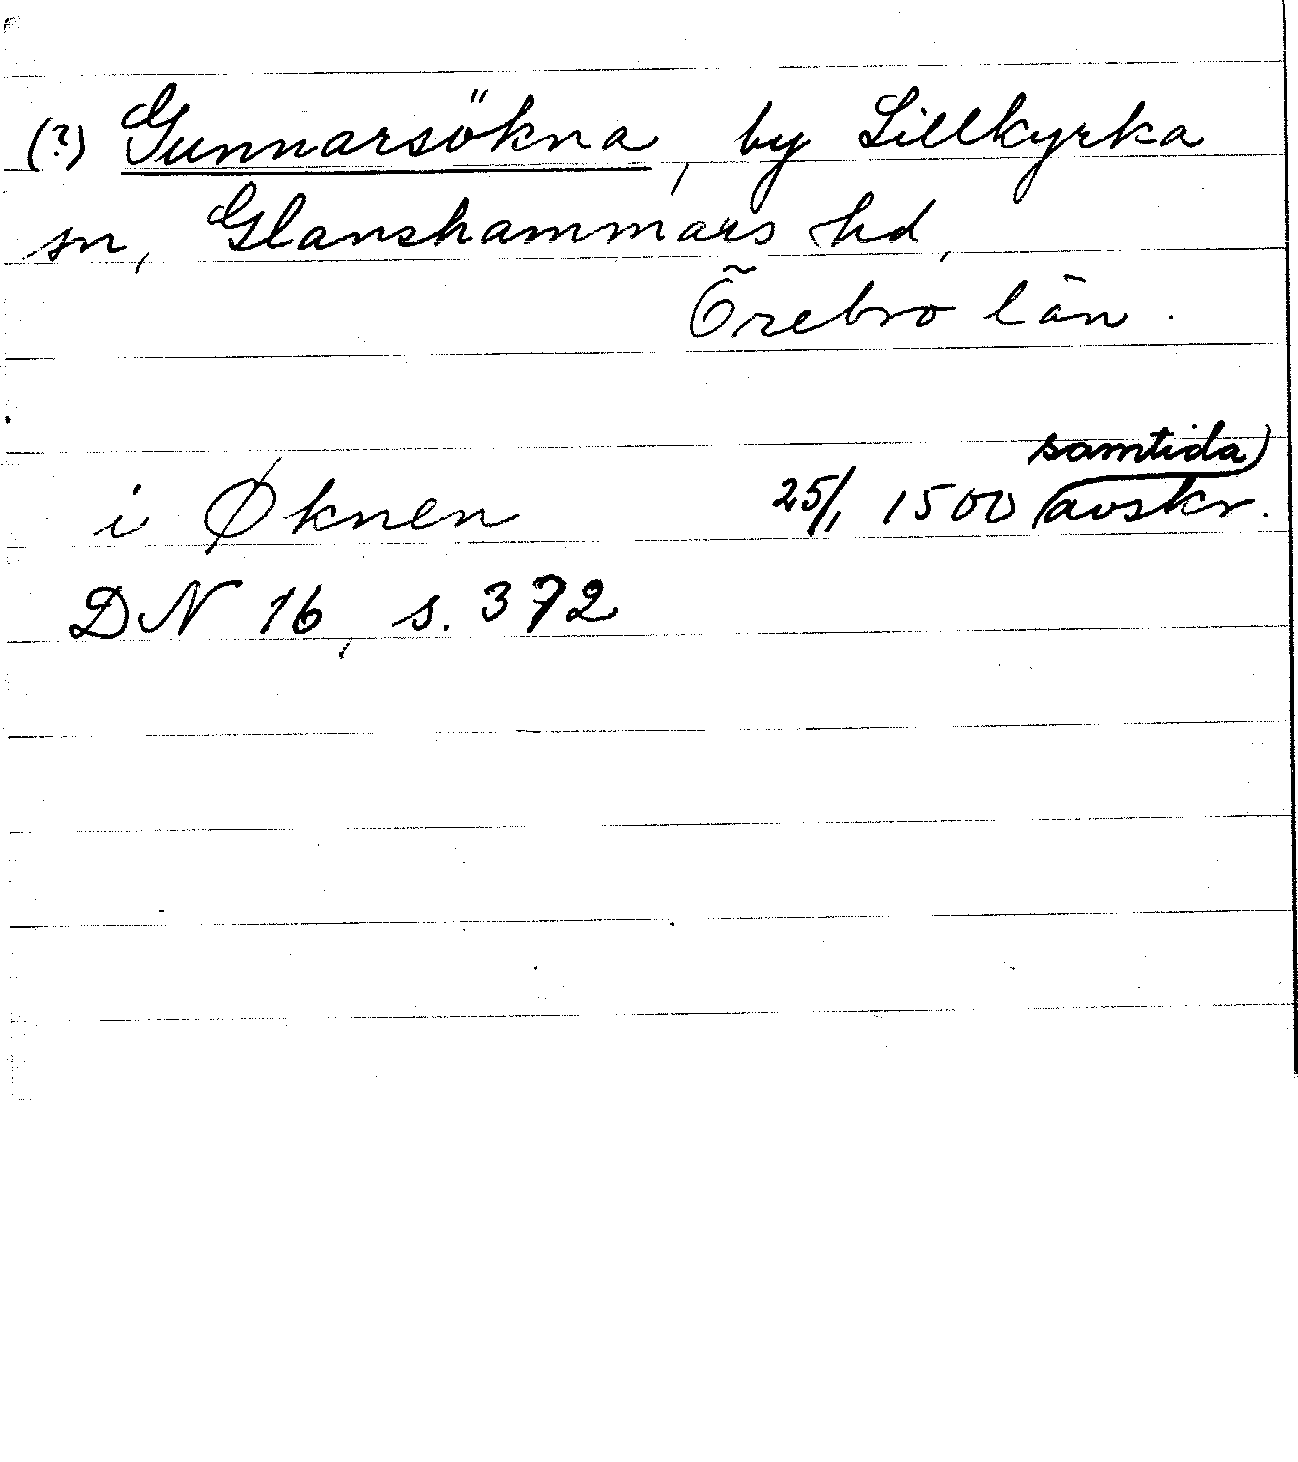 (?) Gunnarsökna, by Lillkyrka
sn, Glanshammars hd,
Örebro län.
samtida)
i Øknen 25/1 1500 (avskr.
DN 16, s. 372